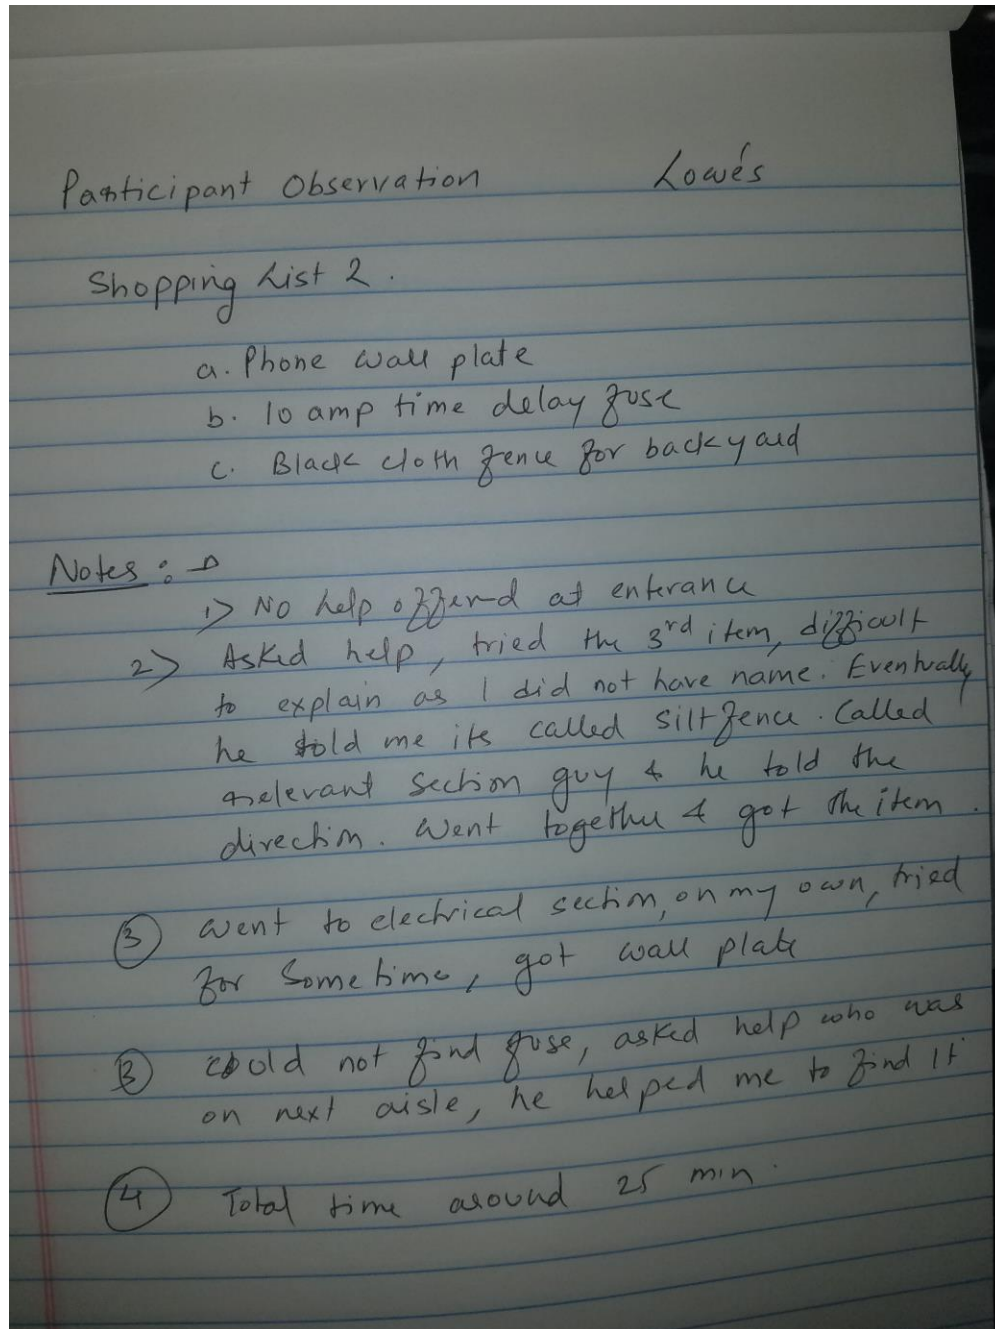 Participant Observation Lowe's
Shopping List 2.
a. Phone wall plate
b. 10 amp time delay fuse
c. Black cloth fence for backyard
Notes :
1> No help offered at enterance
2> Asked help, tried the 3rd item, difficult
to explain as I did not have name. Eventually
he told me its called silt fence. Called
relevant section guy & he told the
direction. Went together & got the item.
3 Went to electrical section, on my own, tried
for Sometime, got wall plate
3 could not find fuse, asked help who was
on next aisle, he helped me to find it
4 Total time around 25 min.